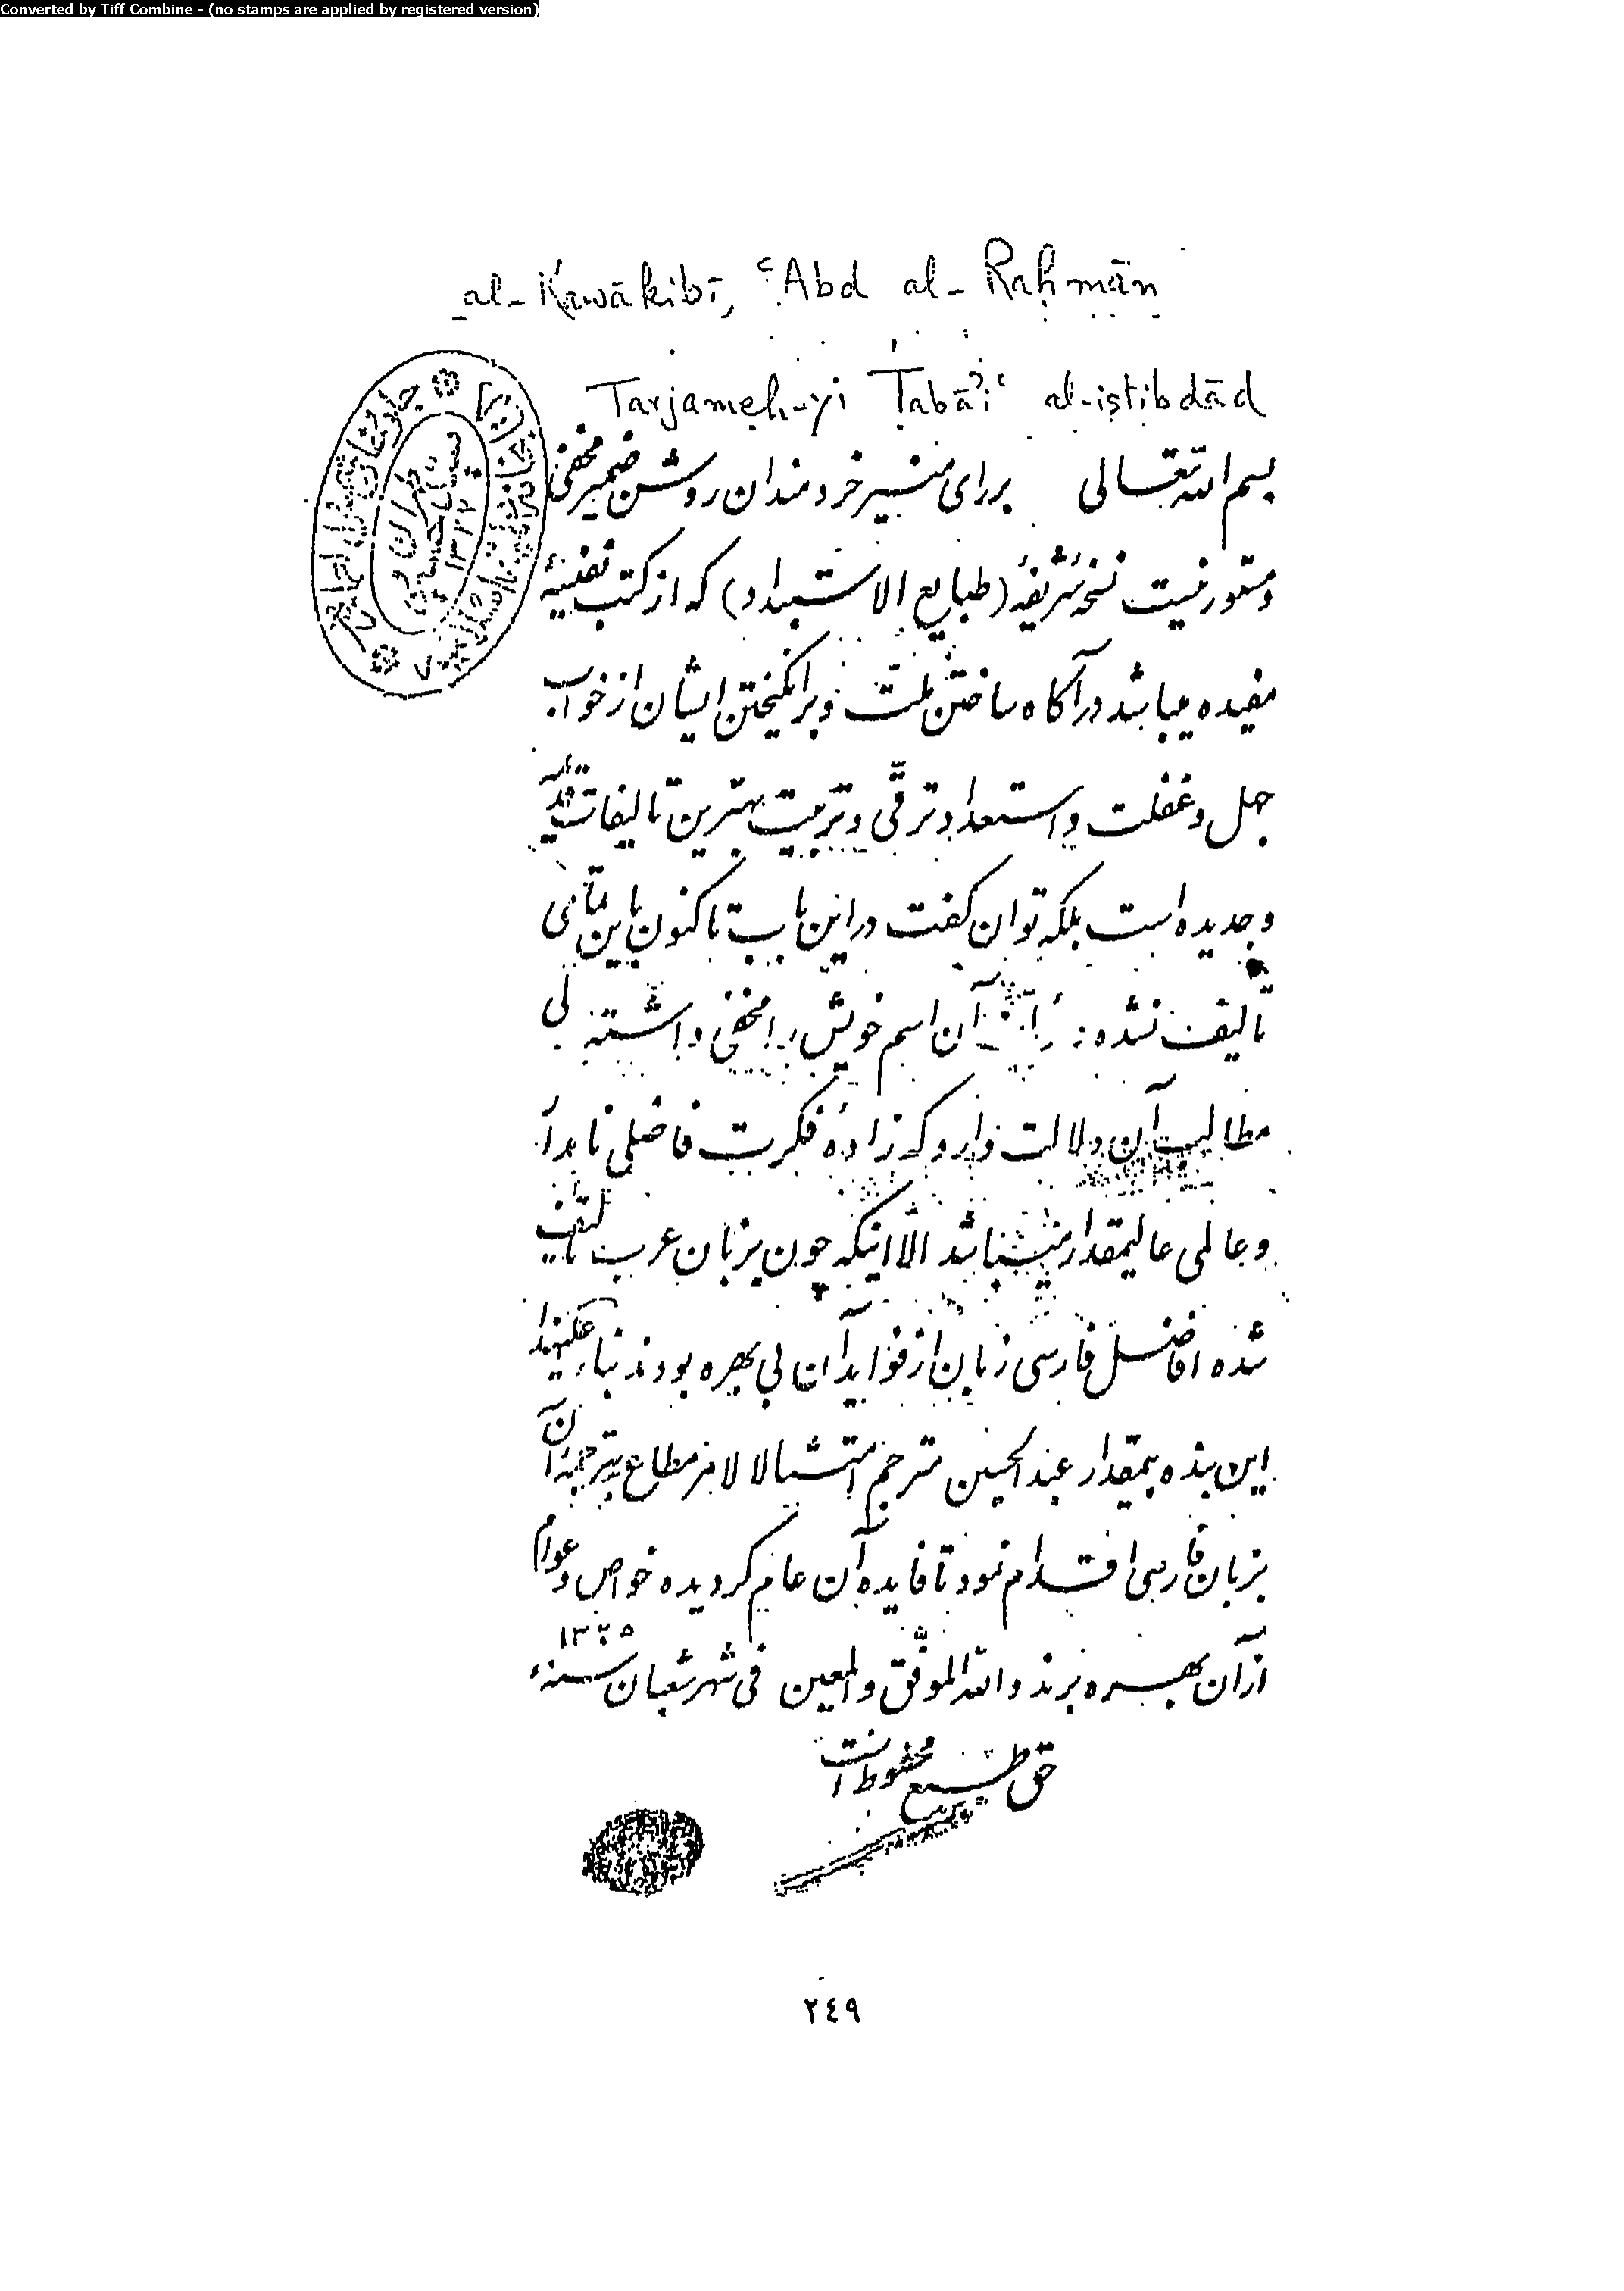 Converted by Tiff Combine - (no stamps are applied by registered version)
al-Kawākibī, ʿAbd al-Raḥmān
Tarjameh-yi Ṭabāʾiʿ al-istibdād
بسم الله تعالی بررای منیر خردمندان روشن ضمیر مخفی
و مستور نیست نسخهٔ شریفهٔ (طبایع الاستبداد) که از کتب نفیسهٔ
مفیده میباشد در آکاه ساختن ملت و برانکیختن ایشان از خواب
جهل و غفلت و استعداد ترقّی و تربیت بهترین تالیفات
و جدیده است بلکه توان کفت در این باب تاکنون باین تمامی
تألیف نشده آن اسم خویش را مخفی داشته
مطالب آن دلالت دارد که زادهٔ فکرت فاضلی نامدار
و عالمی عالیمقدار میباشد الّا اینکه چون بزبان عرب تألیف
شده افاضل فارسی زبان از فواید آن بی بهره بودند بنا علیهذا
این بنده بیمقدار عبد الحسین مترجم امتثالا لامر مطاع بترجمهٔ آن
بزبان فارسی اقدام نمود تا فایده آن عام کردیده خواص و عوام
از آن بهره برند والله الموفّق والمعین فی شهر شعبان سنهٔ ۱۳۲۵
حق طبع محفوظ است
٢٤٩